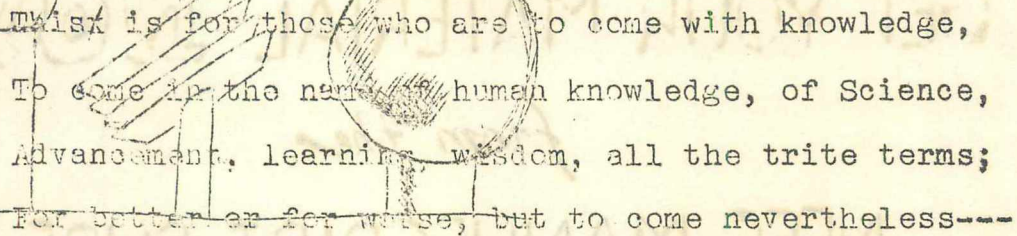 Thisx is for those who are to come with knowledge,
To come in the name of human knowledge, of Science,
Advancement, learning, wisdom, all the trite terms;
For better or for worse, but to come nevertheless----